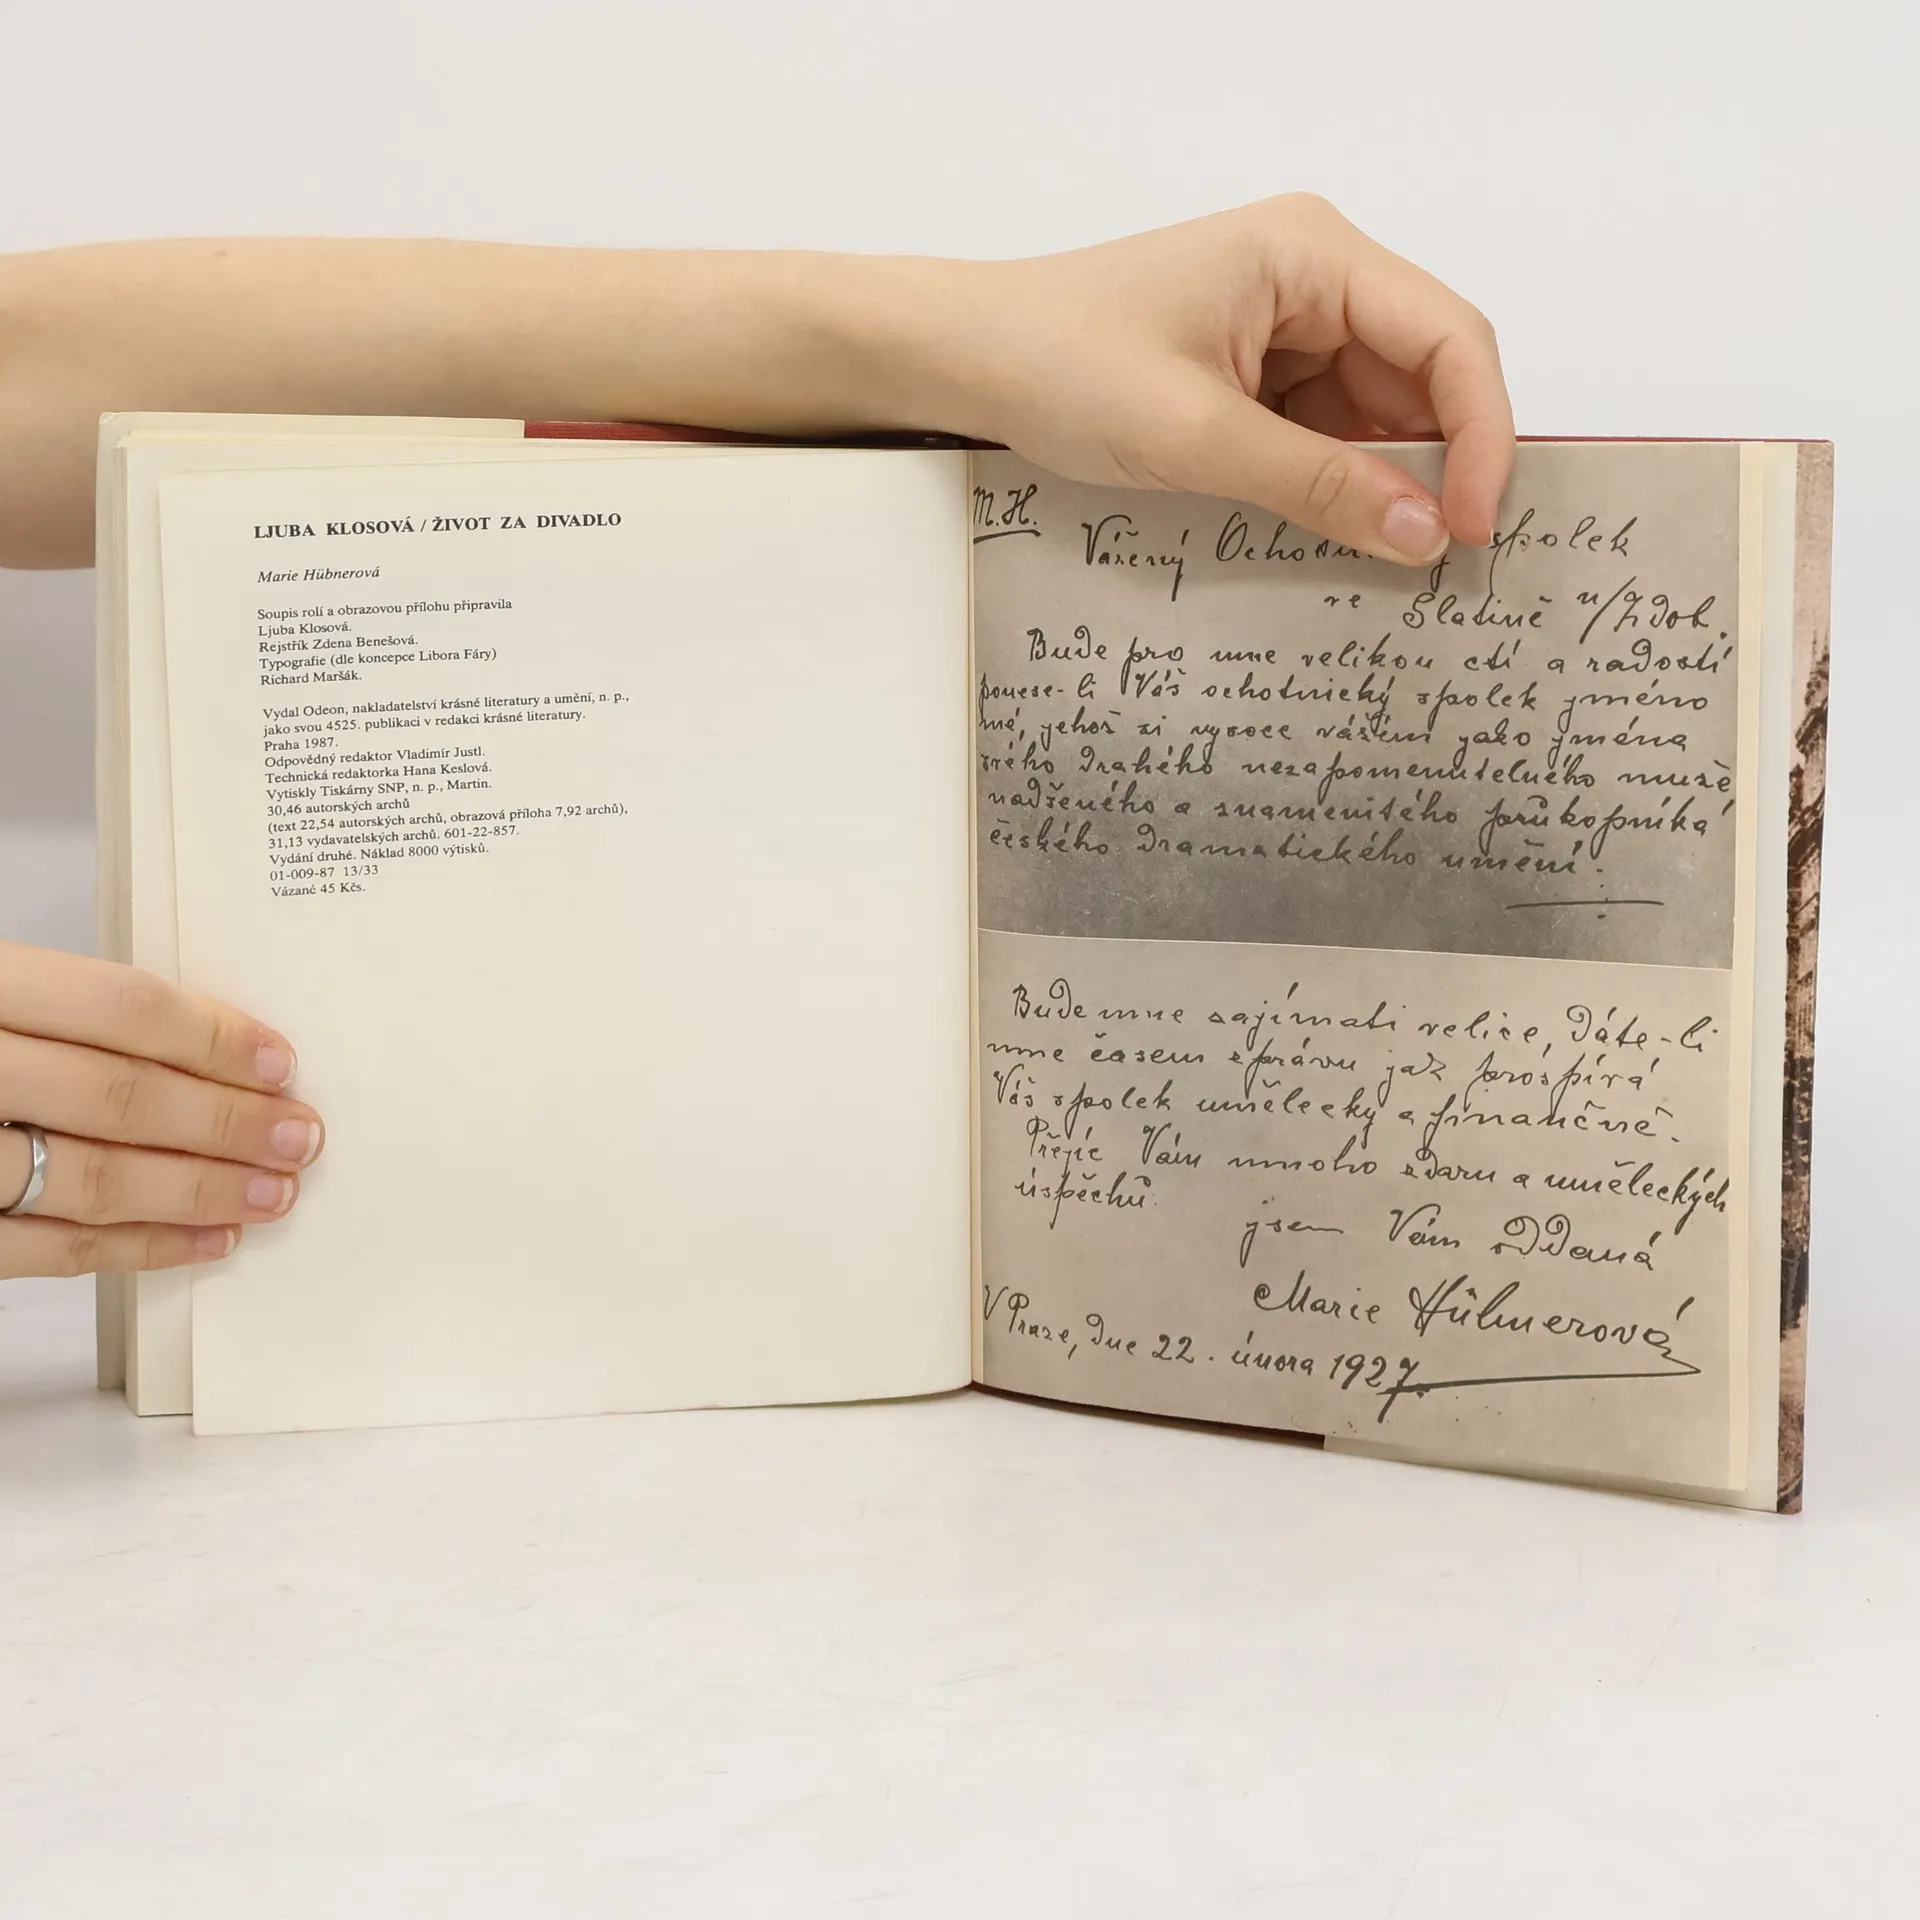 LJUBA KLOSOVÁ / ŽIVOT ZA DIVADLO
Marie Hübnerová
Soupis rolí a obrazovou přílohu připravila
Ljuba Klosová.
Rejstřík Zdena Benešová.
Typografie (dle koncepce Libora Fáry)
Richard Maršák.
Vydal Odeon, nakladatelství krásné literatury a umění, n. p.,
jako svou 4525. publikaci v redakci krásné literatury.
Praha 1987.
Odpovědný redaktor Vladimír Justl.
Technická redaktorka Hana Keslová.
Vytiskly Tiskárny SNP, n. p., Martin.
30,46 autorských archů
(text 22,54 autorských archů, obrazová příloha 7,92 archů),
31,13 vydavatelských archů. 601-22-857.
Vydání druhé. Náklad 8000 výtisků.
01-009-87 13/33
Vázané 45 Kčs.
M. H.
Vážený spolek
ve Slatině n/Zdob.
Bude pro mne velikou ctí a radostí
ponese-li Váš ochotnický spolek jméno
mé, jehož si vysoce vážím jako jména
svého drahého nezapomenutelného muže
nadšeného a znamenitého průkopníka
českého dramatického umění.
Bude mne zajímati velice, dáte-li
mne časem zprávu jak prospívá
Váš spolek umělecky a finančně.
Přejíc Vám mnoho zdaru a uměleckých
úspěchů.
jsem Vám oddaná
Marie Hübnerová
V Praze, dne 22. února 1927.